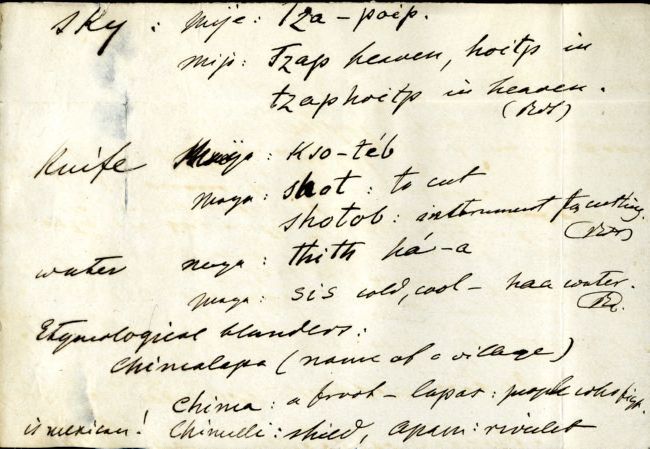 Sky : Mije: Tza-poip.
Mije: Tzap heaven, hoitp in
tzaphoitp in heaven.
Knife : Kso-téb
maya: shot : to cut
shotob: instrument for cutting.
water maya: thith há-a
maya: sis cold, cool - haa water.
Etymological blunders:
Chimalapa (name of a village)
Chima: a - lapas: people who
is mexican! Chimulli: shield, apam: rivulet